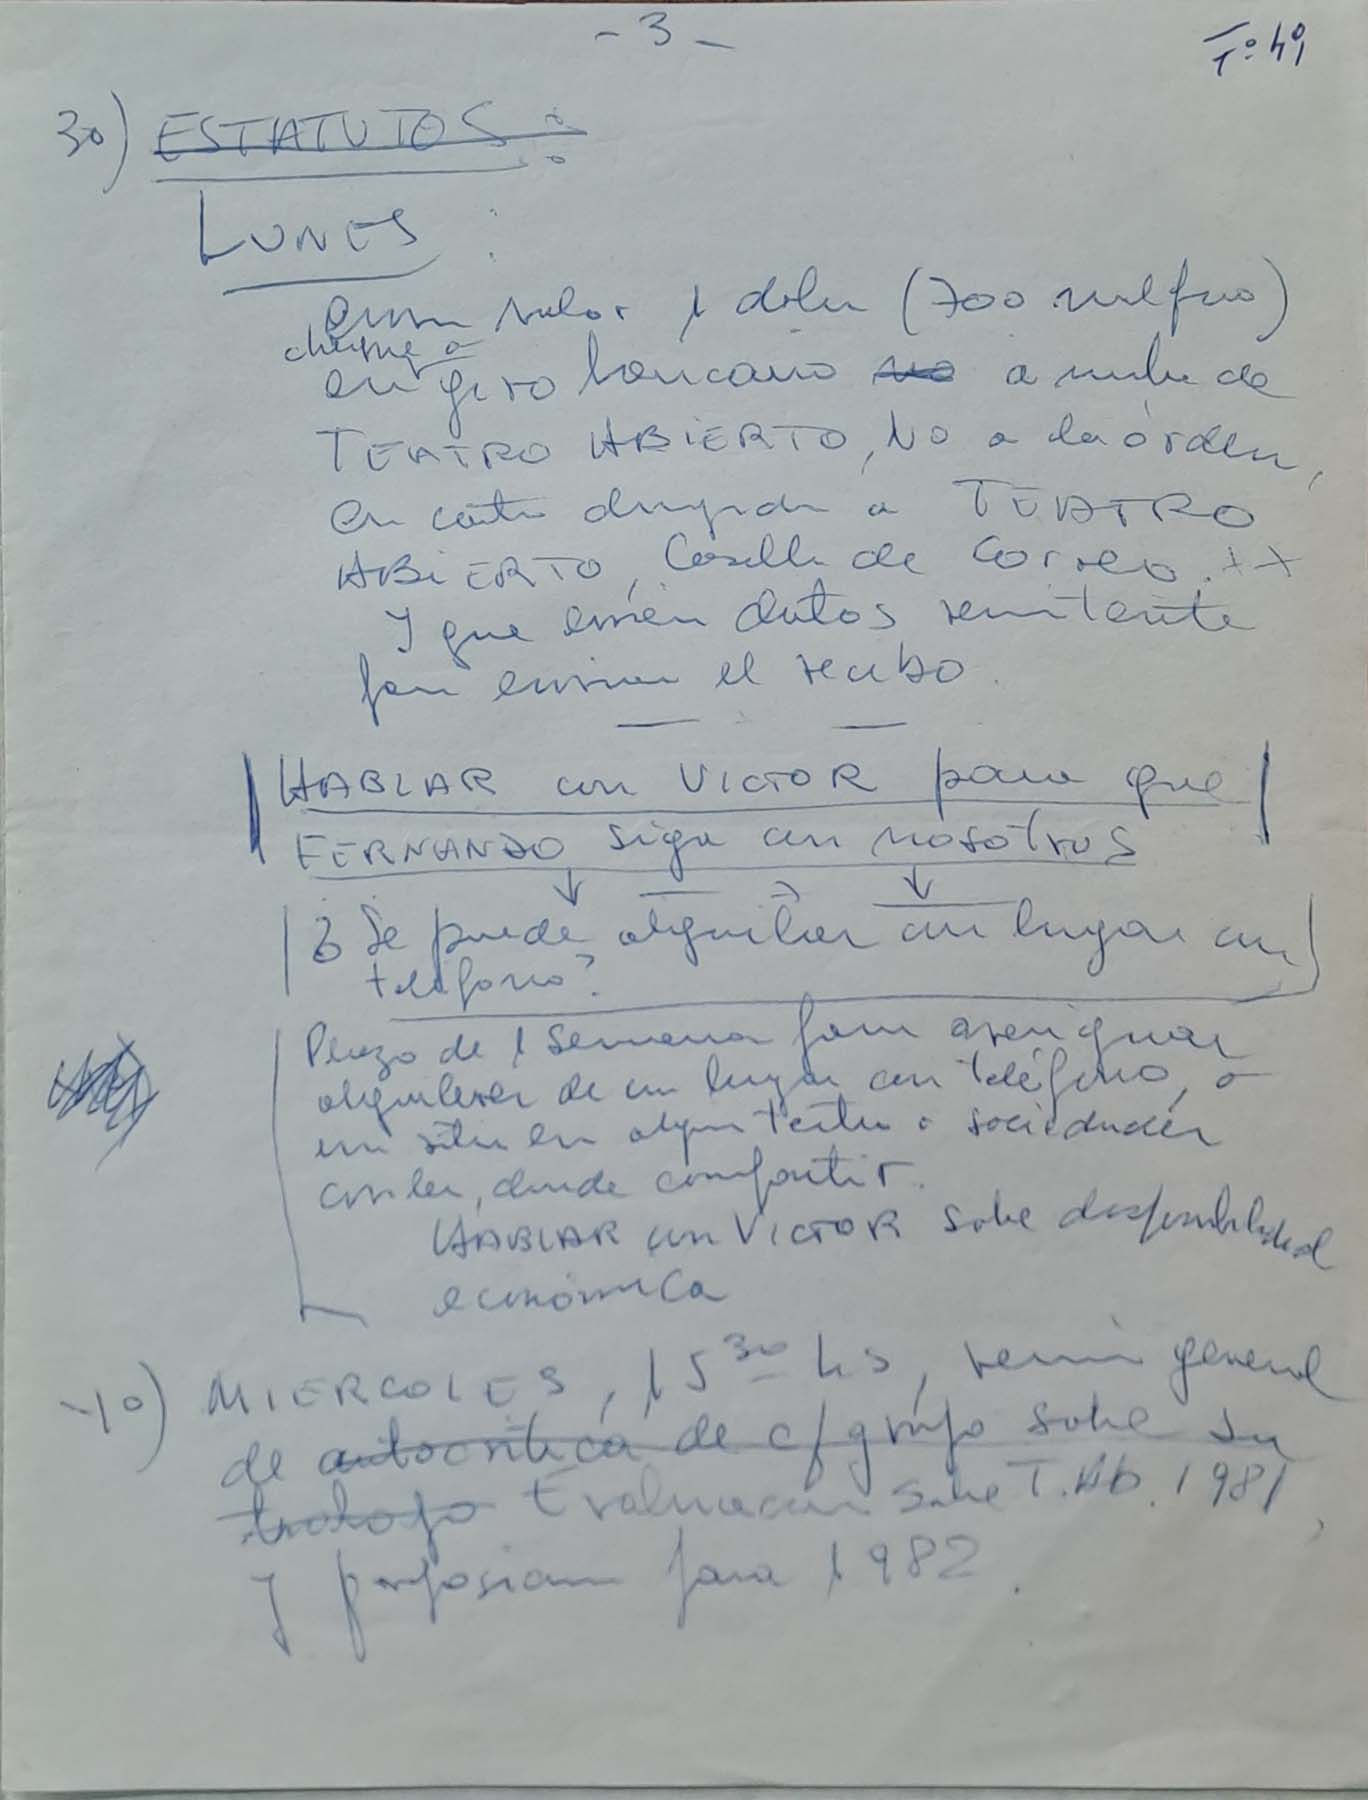 - 3 -
Fº 49
3º) ESTATUTOS :
LUNES :
enviar valor 1 dolar (700 mil )
cheque o
en giro bancario no a nombre de
TEATRO ABIERTO, NO a la órden,
en carta dirigida a TEATRO
ABIERTO, Casilla de Correo. ++
Y que envíen datos remitente
para enviar el recibo.
HABLAR con VICTOR para que
FERNANDO siga con nosotros
¿ Se puede alquilar un lugar con
teléfono?
Plazo de 1 semana para averiguar
alquileres de un lugar con teléfono, o
un sitio en algun teatro o sociedad
donde compartir.
HABLAR con VICTOR sobre disponibilidad
económica
4º) MIERCOLES, 15 30 hs, reunión general
de autocritica de c/grupo sobre su
trabajo Evaluacion sobre T. Ab. 1981,
y para 1982.